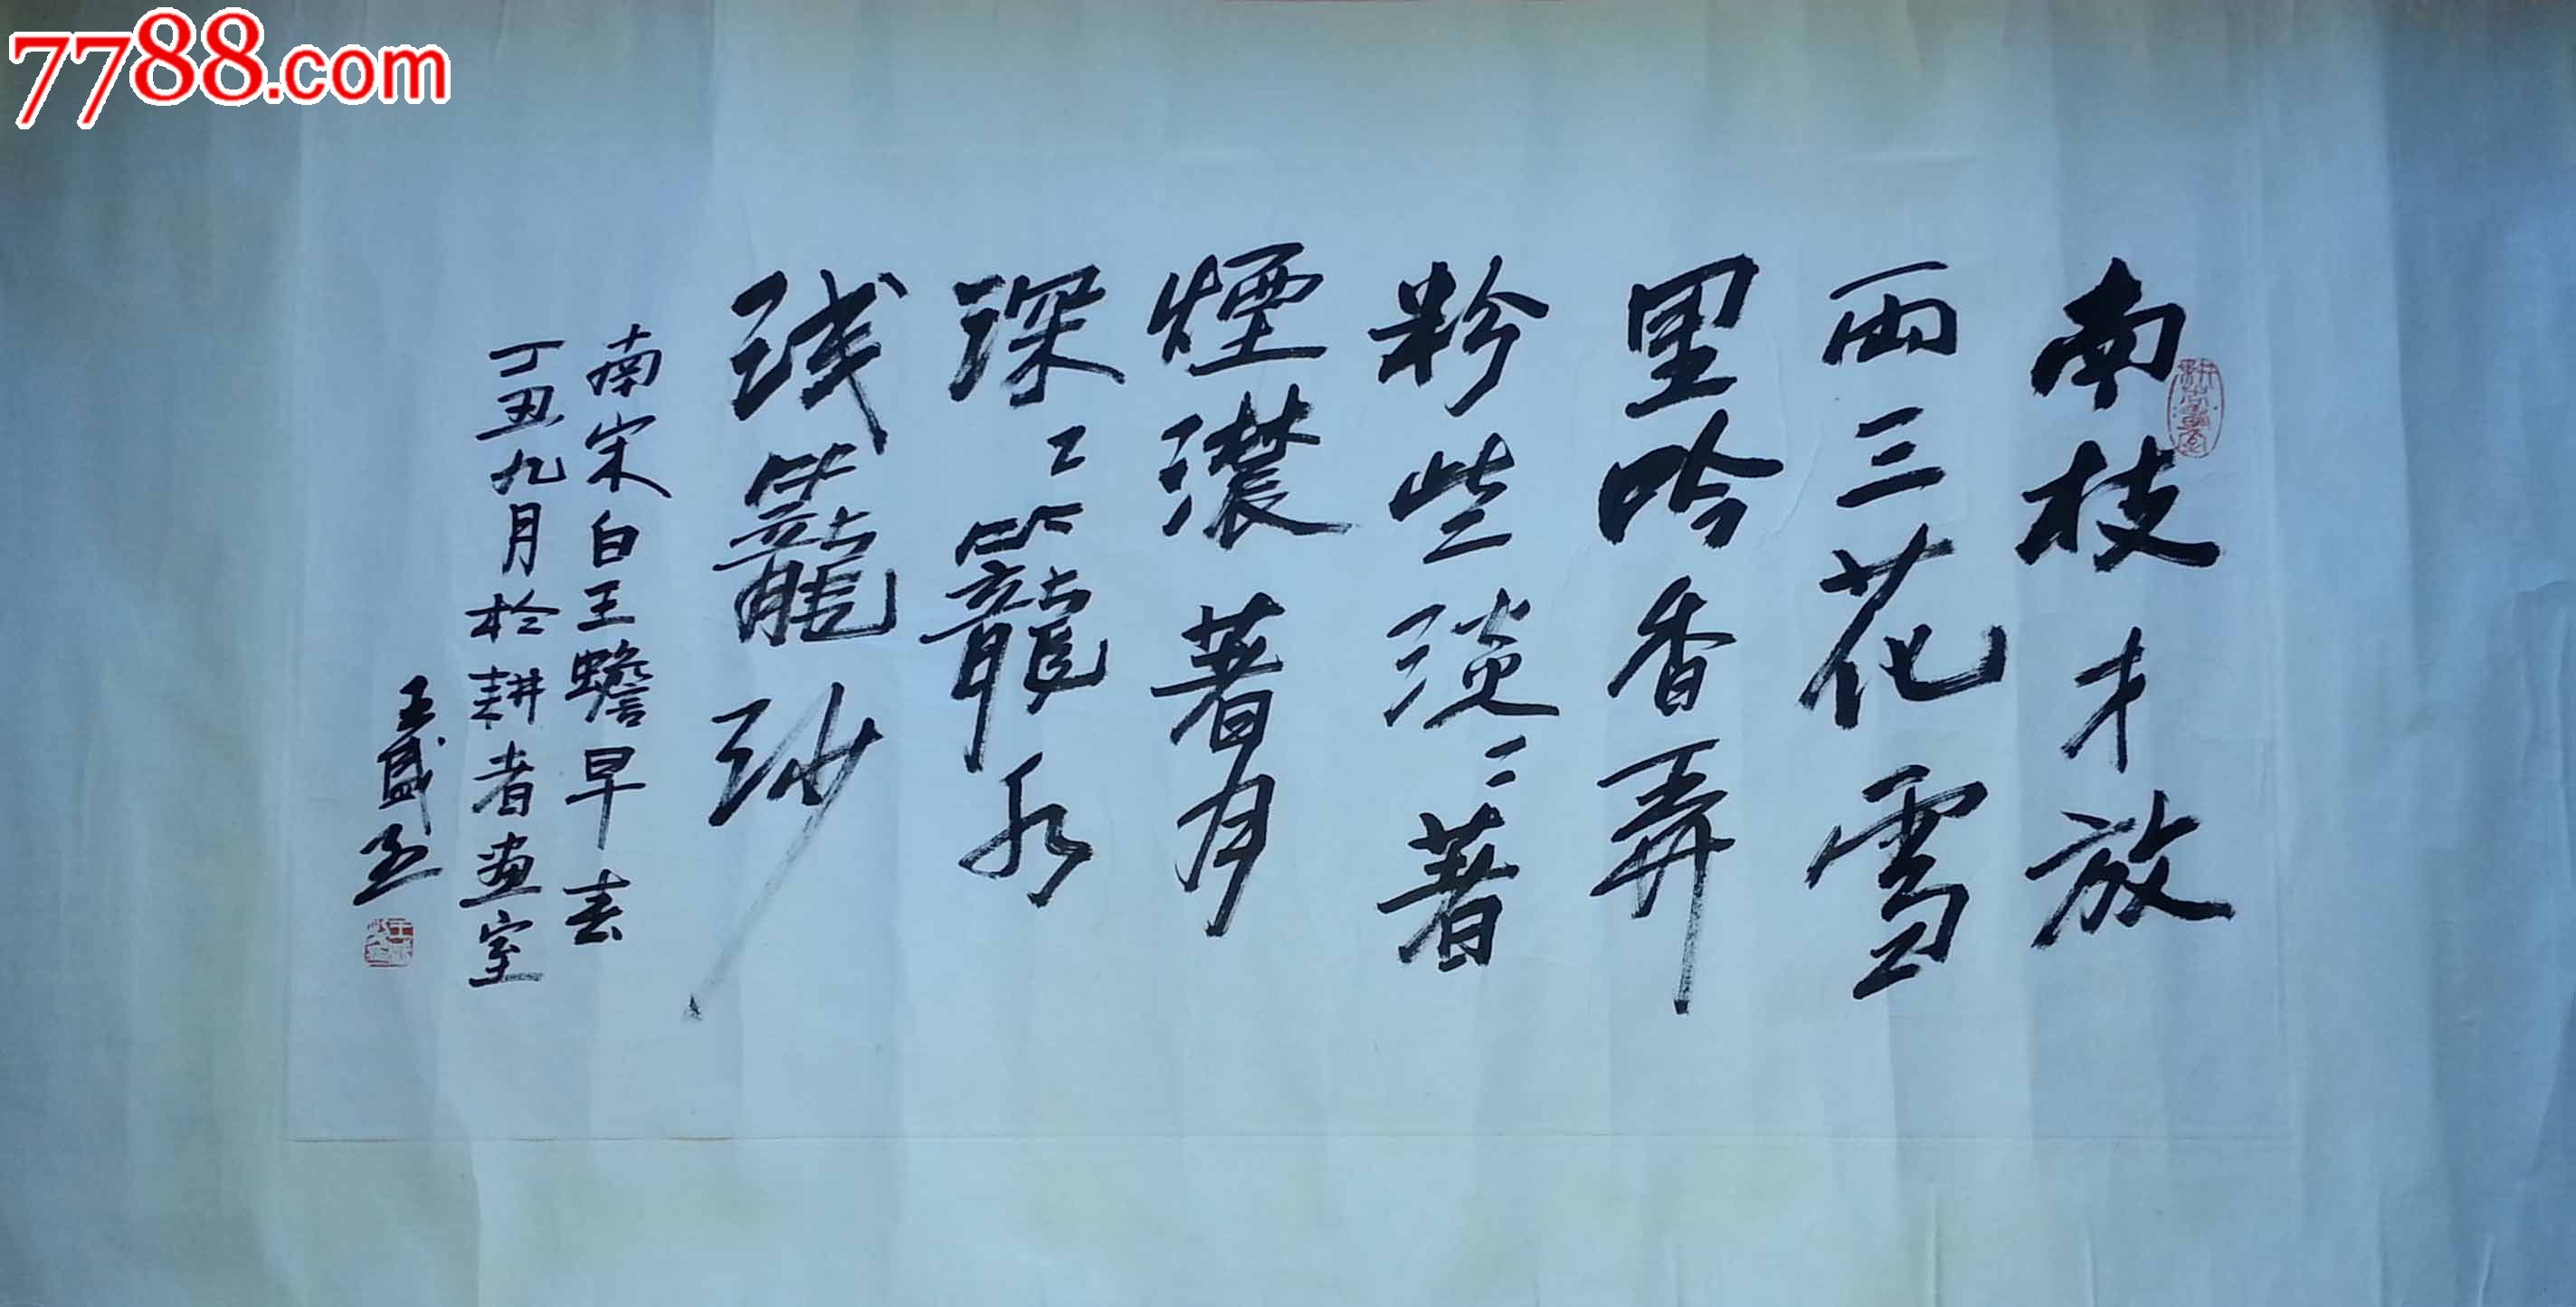 7788.com
南枝才放
兩三花雪
里吟香弄
粉些淡〻著
煙濃著月
深〻籠水
浅籠沙
南宋白玉蟾早春
丁丑九月於耕者画室
王盛